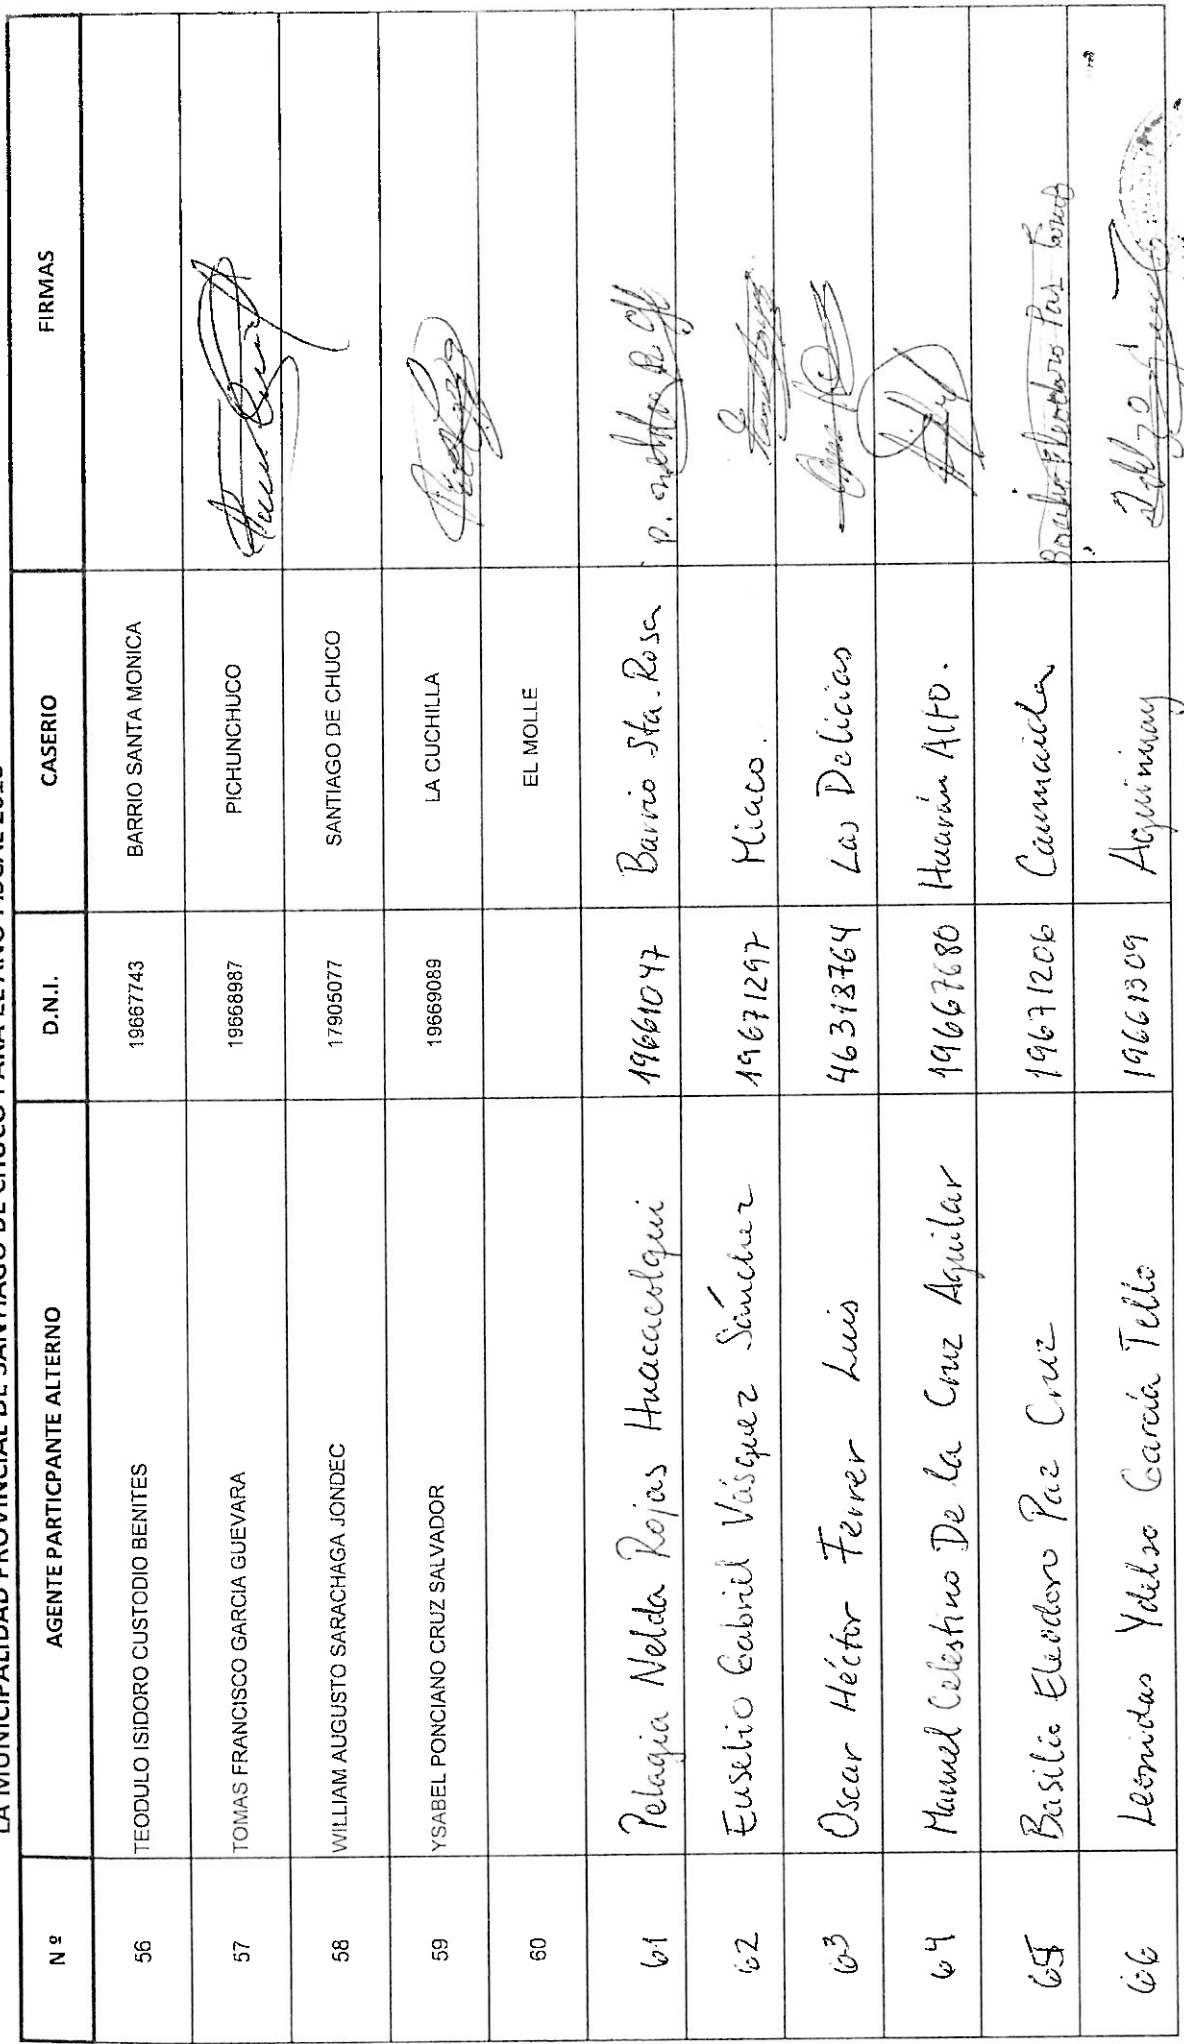 LA MUNICIPALIDAD PROVINCIAL DE SANTIAGO DE CHUCO PARA EL AÑO FISCAL
Nº AGENTE PARTICPANTE ALTERNO D.N.I. CASERIO FIRMAS
56 TEODULO ISIDORO CUSTODIO BENITES 19667743 BARRIO SANTA MONICA
57 TOMAS FRANCISCO GARCIA GUEVARA 19668987 PICHUNCHUCO
58 WILLIAM AUGUSTO SARACHAGA JONDEC 17905077 SANTIAGO DE CHUCO
59 YSABEL PONCIANO CRUZ SALVADOR 19669089 LA CUCHILLA
60 EL MOLLE
61 Pelagia Nelda Rojas Huacacolqui 19661047 Barrio Sta. Rosa
62 Eusebio Gabriel Vásquez Sánchez 19671297 Miaco.
63 Oscar Héctor Ferrer Luis 46318764 Las Delicias
64 Manuel Celestino De la Cruz Aguilar 19667680 Huarán Alto.
65 Basilio Eleodoro Paz Cruz 19671206
66 Leonidas Ydelso García Tello 19661309 Aguinuay